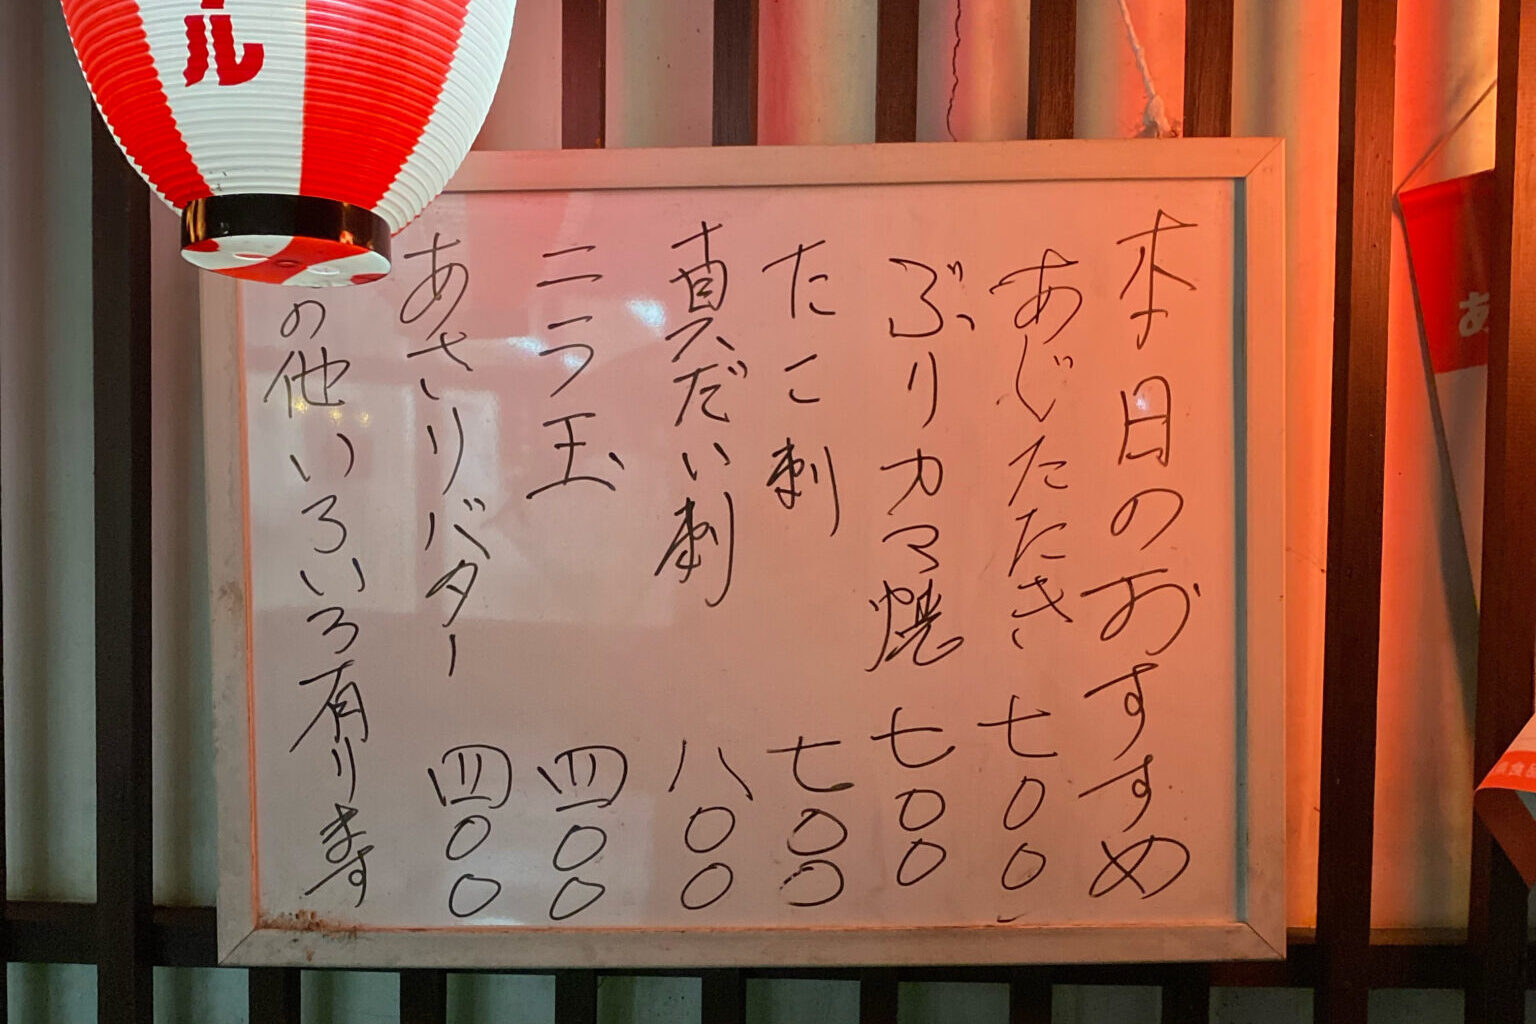 本日のおすすめ
あじたたき 七〇〇
ぶりカマ焼 七〇〇
たこ刺 七〇〇
真だい刺 八〇〇
ニラ玉 四〇〇
あさりバター 四〇〇
の他いろいろ有ります
ル
あ